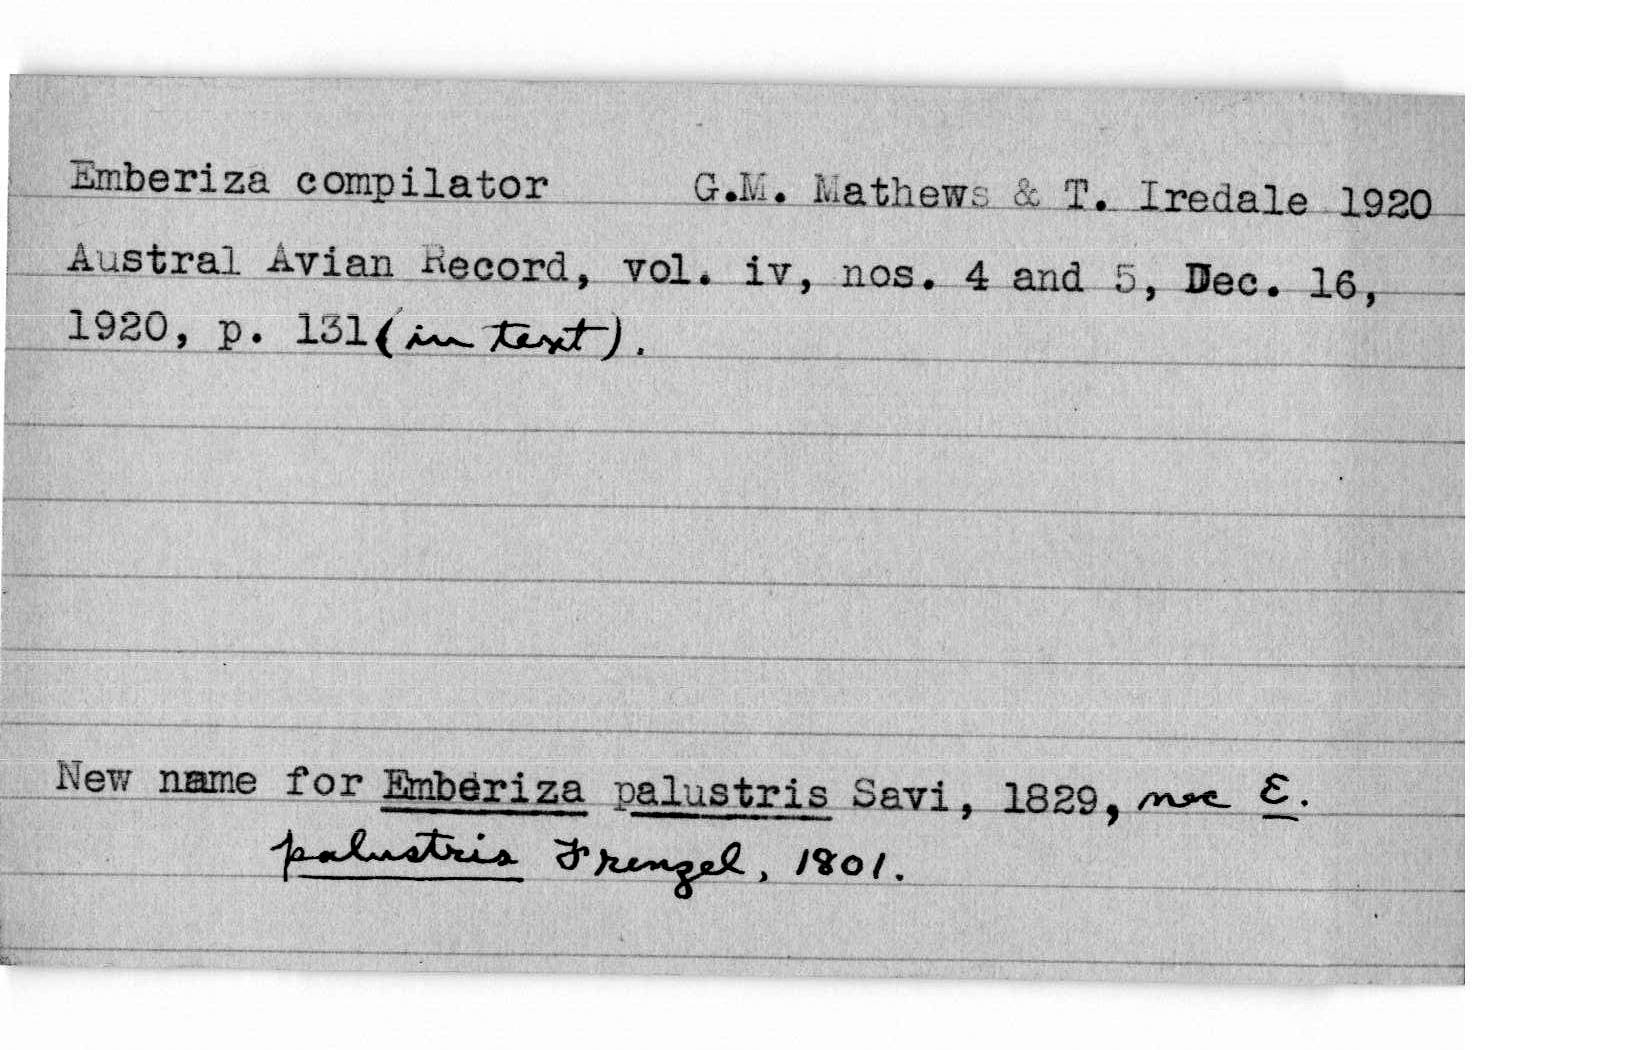 Emberiza compilator G.M. Mathews & T. Iredale 1920
Austral Avian Record, vol. iv, nos. 4 and 5, Dec. 16,
1920, p. 131 (in text).
New name for Emberiza palustris Savi, 1829, nec E.
palustris Frenzel, 1801.